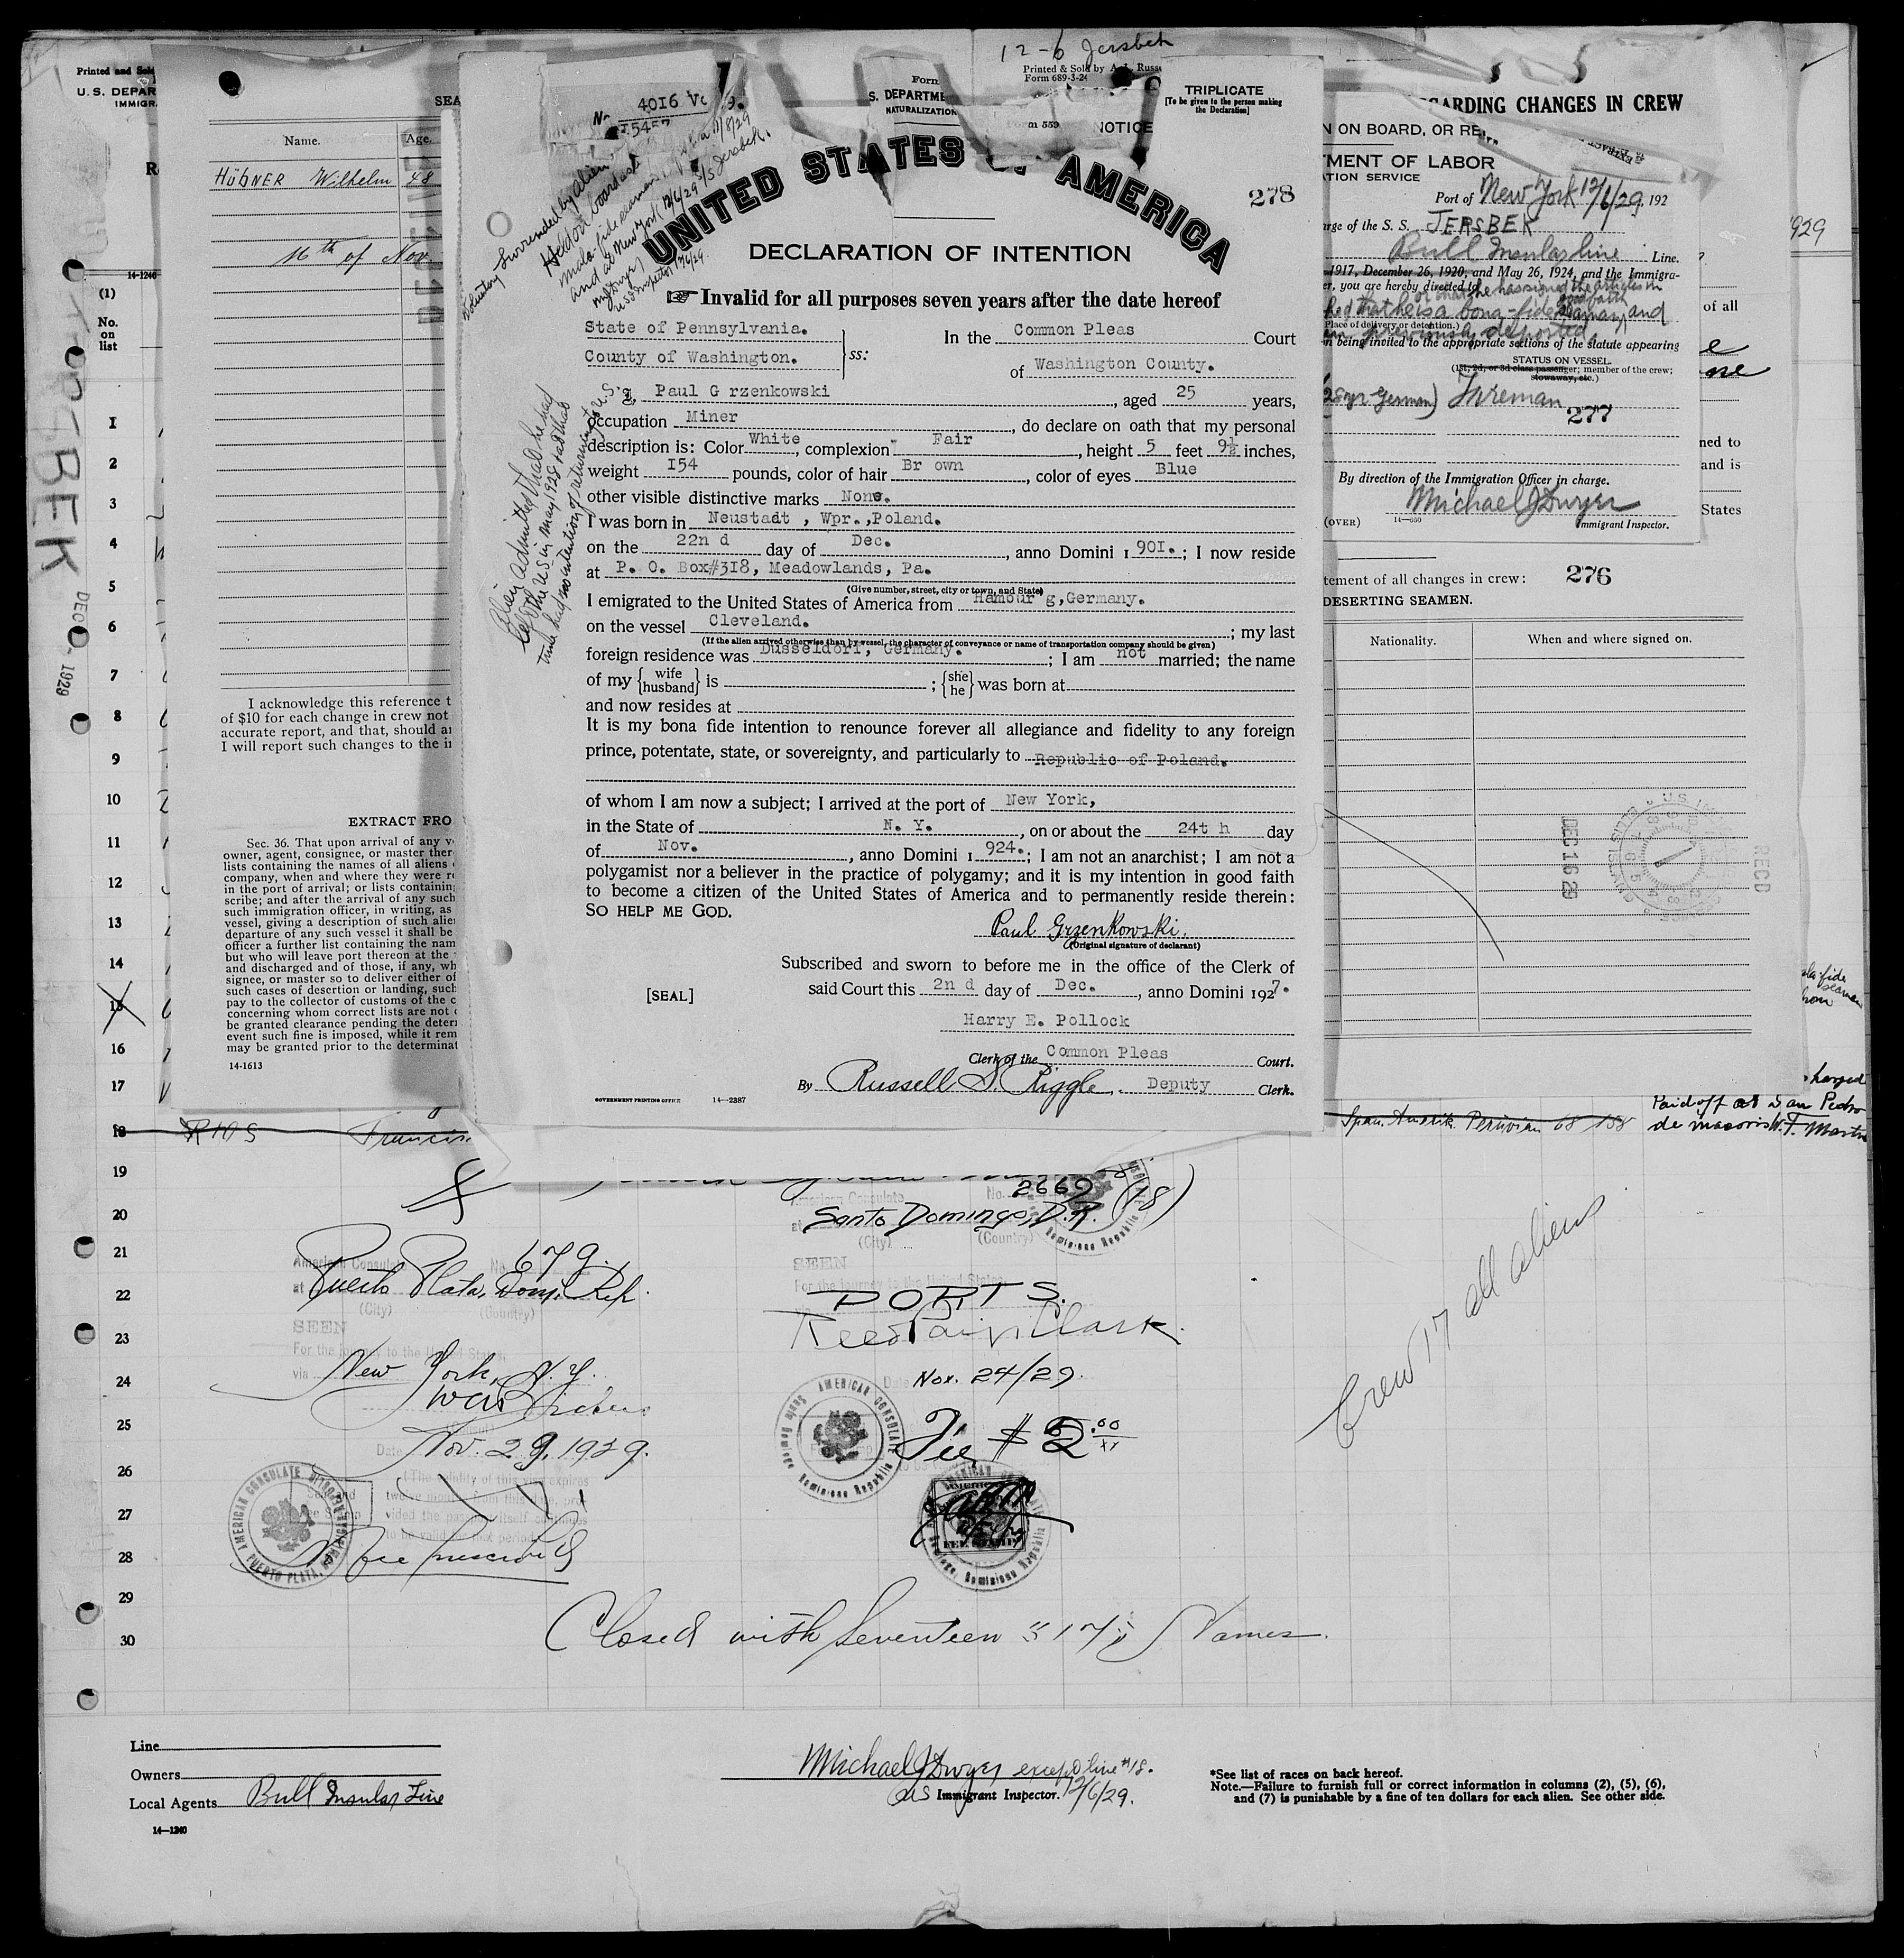 12-6 Jersbek
Printed & Sold by A. L. Russ
Form 689-3-24
Printed and Sold
U. S. DEPAR
IMMIGR
14-1240
(1)
No.
on
list
1
2
3
4
5
6
7
8
9
10
11
12
13
14
15
16
17
18
19
20
21
22
23
24
25
26
27
28
29
30
DEC 1929
SEA
Name.
Age.
HÜBNER Wilhelm 48
16th of Nov
I acknowledge this reference t
of $10 for each change in crew not
accurate report, and that, should an
I will report such changes to the i
EXTRACT FRO
Sec. 36. That upon arrival of any v
owner, agent, consignee, or master ther
lists containing the names of all aliens
company, when and where they were re
in the port of arrival; or lists containin
scribe; and after the arrival of any such
such immigration officer, in writing, as
vessel, giving a description of such alie
departure of any such vessel it shall be
officer a further list containing the nam
but who will leave port thereon at the
and discharged and of those, if any, wh
signee, or master so to deliver either of
such cases of desertion or landing, such
pay to the collector of customs of the c
concerning whom correct lists are not
be granted clearance pending the deter
event such fine is imposed, while it rem
may be granted prior to the determinat
14-1613
No. 4016
Form
S. DEPARTME
NATURALIZATION
NOTICE
TRIPLICATE
[To be given to the person making
the Declaration]
278
UNITED STATES OF AMERICA
DECLARATION OF INTENTION
☞ Invalid for all purposes seven years after the date hereof
Voluntary surrendered by alien
Held on board as
mala-fide seaman
and at New York (12/6/29 S/S Jersbek.
MJDwyer
US Inspector 12/6/29
Alien admitted that he had
left the U.S in May 1928 and that
time had no intention of returning to U.S.
State of Pennsylvania.
County of Washington.
ss:
In the Common Pleas Court
of Washington County.
I, Paul G rzenkowski, aged 25 years,
occupation Miner, do declare on oath that my personal
description is: Color White, complexion Fair, height 5 feet 9½ inches,
weight I54 pounds, color of hair Br own, color of eyes Blue
other visible distinctive marks None.
I was born in Neustadt , Wpr.,Poland.
on the 22n d day of Dec., anno Domini 1 901.; I now reside
at P. O. Box#3I8, Meadowlands, Pa.
(Give number, street, city or town, and State)
I emigrated to the United States of America from Hambur g,Germany.
on the vessel Cleveland.; my last
(If the alien arrived otherwise than by vessel, the character of conveyance or name of transportation company should be given)
foreign residence was Dusseldorf, Germany.; I am not married; the name
of my {wife husband} is ; {she he} was born at
and now resides at
It is my bona fide intention to renounce forever all allegiance and fidelity to any foreign
prince, potentate, state, or sovereignty, and particularly to Republic of Poland.
of whom I am now a subject; I arrived at the port of New York,
in the State of N. Y., on or about the 24t h day
of Nov., anno Domini 1 924.; I am not an anarchist; I am not a
polygamist nor a believer in the practice of polygamy; and it is my intention in good faith
to become a citizen of the United States of America and to permanently reside therein:
SO HELP ME GOD.
Paul Grzenkowski.
(Original signature of declarant)
Subscribed and sworn to before me in the office of the Clerk of
[SEAL]
said Court this 2n d day of Dec., anno Domini 1927.
Harry E. Pollock
Clerk of the Common Pleas Court.
By Russell S. Riggle, Deputy Clerk.
GOVERNMENT PRINTING OFFICE 14—2387
GARDING CHANGES IN CREW
N ON BOARD, OR RE
TMENT OF LABOR
TION SERVICE
Port of New York 12/6/29, 192
rge of the S. S. JERSBEK
Bull Insular line Line.
1917, December 26, 1920, and May 26, 1924, and the Immigra-
er, you are hereby directed to
that he is a bona-fide seaman, and
(Place of delivery or detention.)
previously deported
n being invited to the appropriate sections of the statute appearing
STATUS ON VESSEL.
(1st, 2d, or 3d class passenger; member of the crew;
stowaway, etc.)
German) Fireman
277
By direction of the Immigration Officer in charge.
Michael J Dwyer
(OVER) 14—650 Immigrant Inspector.
1929
of all
ned to
and is
States
tement of all changes in crew: 276
DESERTING SEAMEN.
Nationality.
When and where signed on.
DEC 16 29
RECD
Rios Francis
Span. Amerik. Peruvian 68 158
Paid off at San Pedro
de macoris W.F. Martin
American Consulate No. 679.
at Puerto Plata, Dom. Rep.
(City) (Country)
SEEN
For the journey to the United States,
via New York, N.Y.
Date Nov. 29, 1929.
(The validity of this visa expires
twelve months from this date, pro-
vided the passport itself continues
to be valid for that period.)
AMERICAN CONSULATE
PUERTO PLATA,
No fee prescribed
American Consulate No. 2669 (18)
at Santo Domingo, D.R.
(City) (Country)
SEEN
For the journey to the United States
via PORTS.
Reed Paige Clark.
Date Nov. 24/29.
AMERICAN CONSULATE
Santo Domingo, Dominican Republic
Fee $2.00
Crew 17 all aliens
Closed with Seventeen "17" Names.
Line
Owners
Local Agents Bull Insular Line
14—1240
Michael J Dwyer except line #18.
US Immigrant Inspector. 12/6/29.
*See list of races on back hereof.
Note.—Failure to furnish full or correct information in columns (2), (5), (6),
and (7) is punishable by a fine of ten dollars for each alien. See other side.